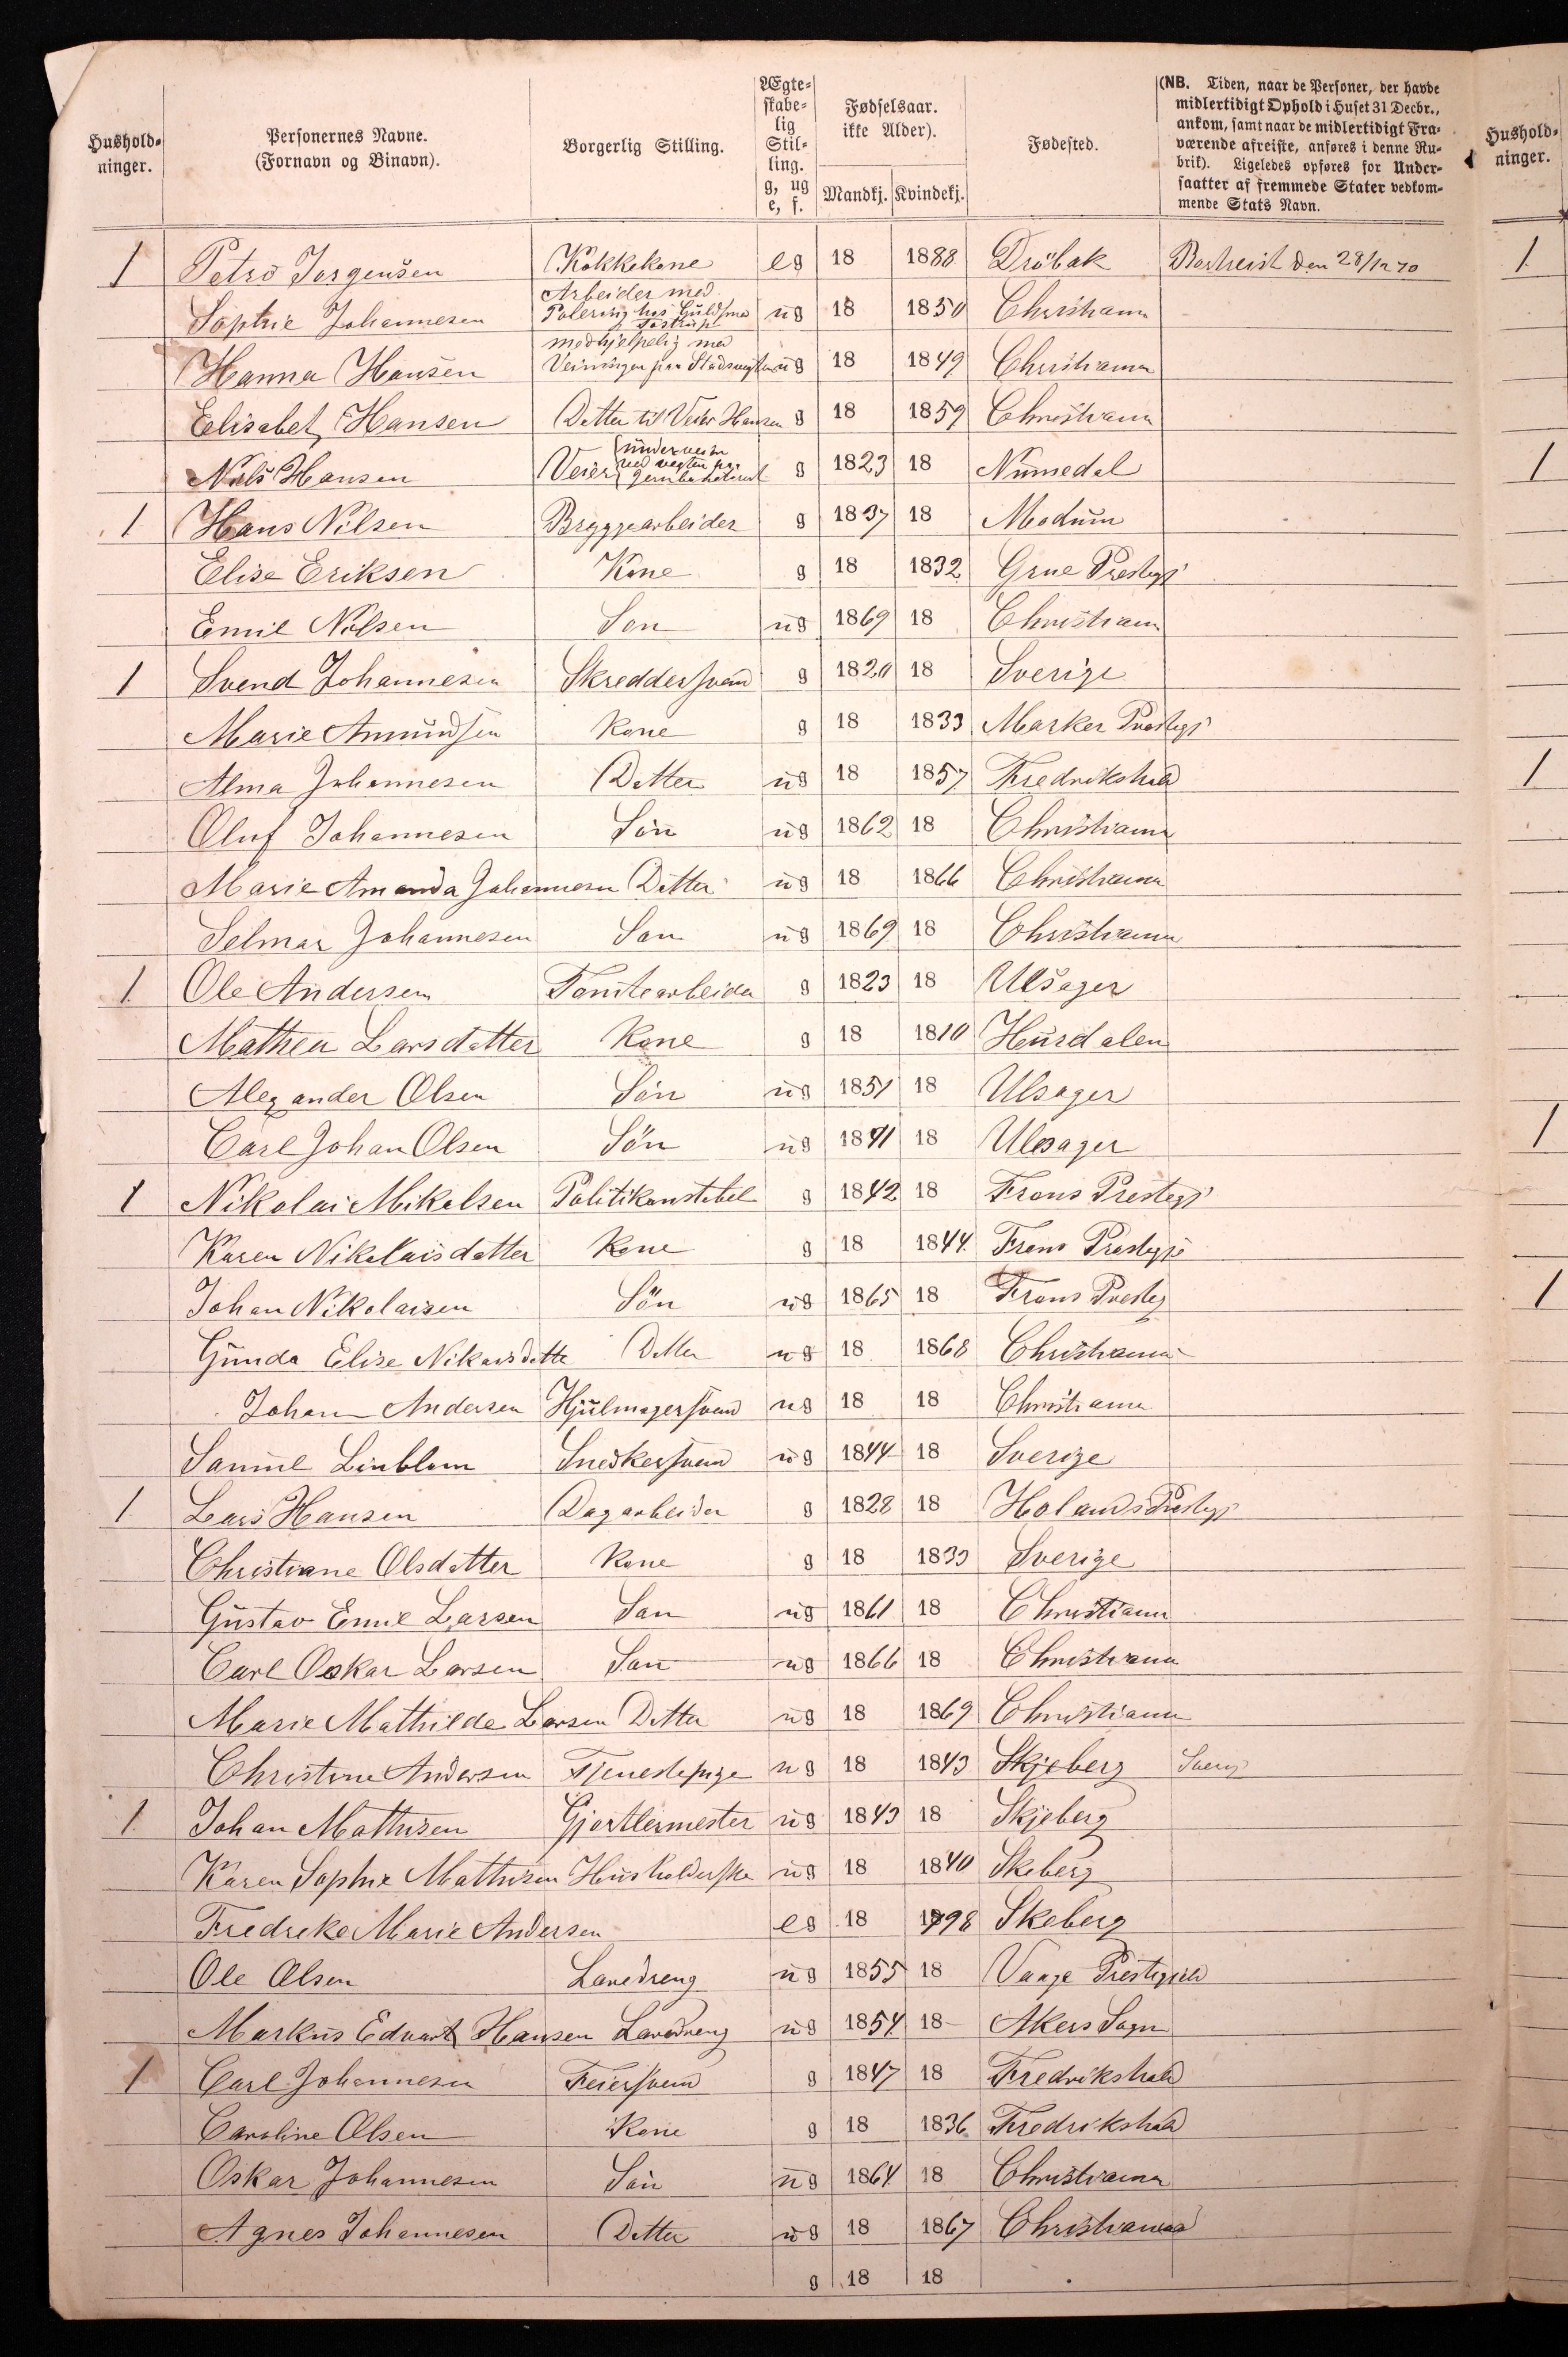 Hushold-
ninger.
Personernes Navne.
(Fornavn og Binavn).
Borgerlig Stilling.
Ægte-
skabe-
lig
Stil-
ling.
g, ug
e, f.
Fødselsaar.
ikke Alder).
Mandkj. Kvindekj.
Fødested.
(NB. Tiden, naar de Personer, der havde
midlertidigt Ophold i Huset 31 Decbr.,
ankom, samt naar de midlertidigt Fra-
værende afreiste, anføres i denne Ru-
brik). Ligeledes opføres for Under-
saatter af fremmede Stater vedkom-
mende Stats Navn.
Hushold-
ninger.
1 Petro Jorgensen Kokkekone eg 18 1888 Dröbak Bortreist den 28/12 70 1
Sophie Johannesen Arbeider med Polering hos Guldsmed Tostrup ug 18 1850 Christiania
Hanna Hansen medhjelpelig med Veiningen paa ug 18 1849 Christiania
Elisabet Hansen Datter til Veier Hansen g 18 1859 Christiania
Nils Hansen Veier ved vegten paa g 1823 18 Numedal 1
1 Hans Nilsen Bryggearbeider g 1837 18 Modum
Elise Eriksen Kone g 18 1832 Grue Prestegj
Emil Nilsen Son ug 1869 18 Christiania
1 Svend Johannesen Skreddersvend g 1820 18 Sverige
Marie Amundsen Kone g 18 1833 Marker Prestegj
Alma Johannesen Datter ug 18 1857 Fredrikshald 1
Oluf Johannesen Sön ug 1862 18 Christiania
Marie Amanda Johannesen Datter ug 18 1866 Christiania
Selmar Johannesen Son ug 1869 18 Christiania
1 Ole Andersen Tomtearbeider g 1823 18 Ulsager
Mathea Larsdatter Kone g 18 1810 Hurdalen
Alexander Olsen Sön ug 1851 18 Ulsager
Carl Johan Olsen Sön ug 1841 18 Ulsager 1
1 Nikolai Mikalsen Politikonstabel g 1842 18 Frons Prestegj
Karen Nikolaisdatter Kone g 18 1844 Frons Prestegj
Johan Nikolaisen Sön ug 1865 18 Frons Presteg 1
Gunda Elise Datter ug 18 1868 Christiania
Johan Andersen Hjulmagersvend ug 18 18 Christiania
Samuel Linblom Snedkersvend ug 1844 18 Sverige
1 Lars Hansen Dagarbeider g 1828 18 Holands Prestegj
Christiane Olsdatter Kone g 18 1833 Sverige
Gustav Emil Larsen Son ug 1861 18 Christiania
Carl Oskar Larsen Son ug 1866 18 Christiania
Marie Mathilde Larsen Datter ug 18 1869 Christiania
Christine Andersen Tjenestepige ug 18 1843 Skjeberg
1 Johan Mathisen Gjortlermester ug 1843 18 Skjeberg
Karen Sophie Mathisen Husholderske ug 18 1840 Skeberg
Fredreke Marie Andersen eg 18 1798 Skeberg
Ole Olsen Laredreng ug 1855 18 Vange Prestegjeld
Markus Edvart Hansen Laredreng ug 1854 18 Akers Sogn
1 Carl Johannesen Feiersvend g 1847 18 Fredrikshald
Caroline Olsen Kone g 18 1836 Fredrikshald
Oskar Johannesen Sön ug 1864 18 Christiania
Agnes Johannesen Datter ug 18 1867 Christiania
g 18 18